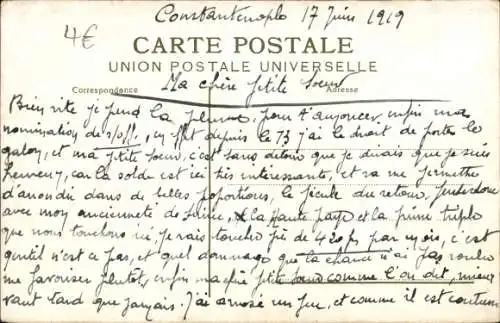 Constantinople 17 Juin 1919
4€
CARTE POSTALE
UNION POSTALE UNIVERSELLE
Correspondance Adresse
Ma chère petite soeur
Bien vite je prend la plume pour t'annoncer enfin ma
nomination de s/off., en effet depuis le 73 j'ai le droit de porter le
galon, et ma petite soeur, c'est sans detour que je dirais que je suis
heureux, car la solde est ici très interessante, et va me permettre
d'arrondir dans de belles proportions, le pécule du retour,
avec mon ancienneté de la haute paye et la prime triple
que nous touchons ici, je vais toucher près de 420 frs par mois, c'est
gentil n'est ce pas, et quel dommage que la chance n'ai pas voulu
me favoriser plutot, enfin ma chère petite soeur comme l'on dit, mieux
vaut tard que jamais. J'ai arrosé un peu, et comme il est coutume